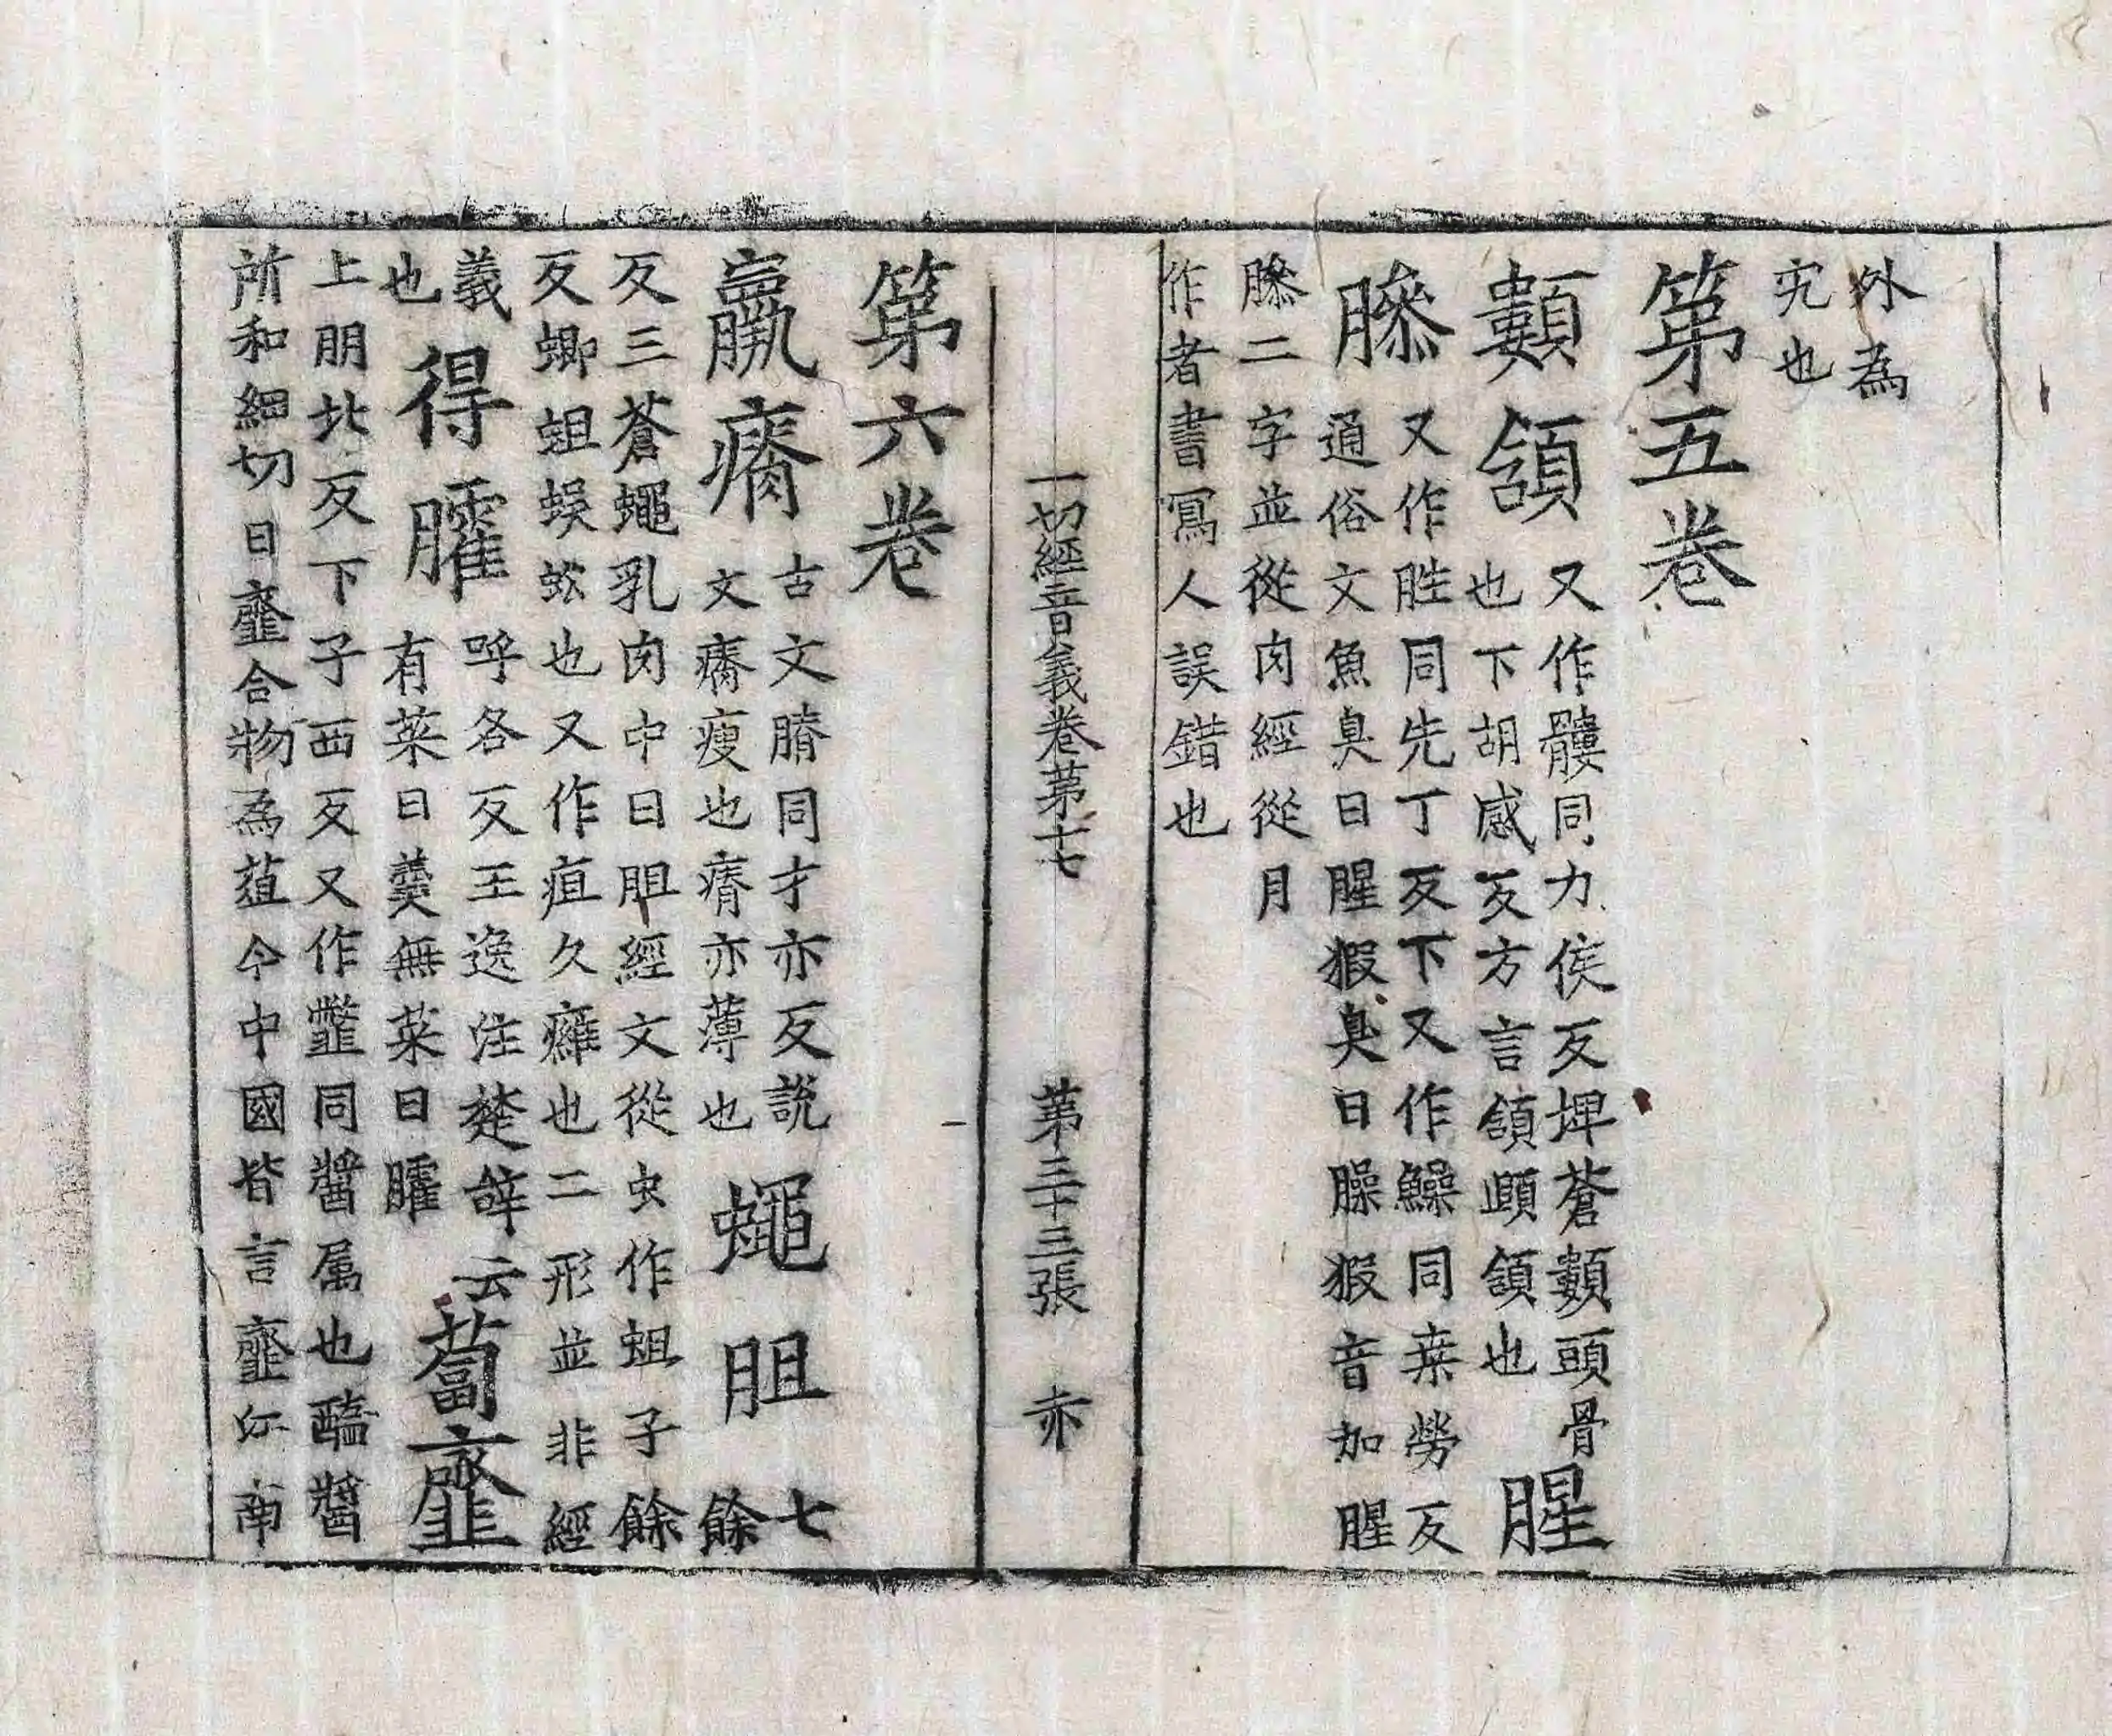 外為
宄也
第五卷
顭頷 又作髏同力侯反埤蒼顭頭骨
也下胡感反方言頷頤頷也 腥
臊 又作胜同先丁反下又作鱢同桒勞反
通俗文魚臭曰腥猳臭曰臊猳音加腥
臊二字並從肉經從月
作者書寫人誤錯也
一切經音義卷第十七 第三十三張 亦
第六卷
羸瘠 古文膌同才亦反說
文瘠瘦也瘠亦薄也 蠅胆 七餘
反三蒼蠅乳肉中曰胆經文從虫作蛆子餘
反蝍蛆蜈蚣也又作疽久癰也二形並非經
義也 得臛 呼各反王逸注楚辭云
有菜曰羹無菜曰臛 蔔齏
上朋北反下子西反又作韲同醬屬也醯醬
所和細切曰齏合物為菹今中國皆言齏江南